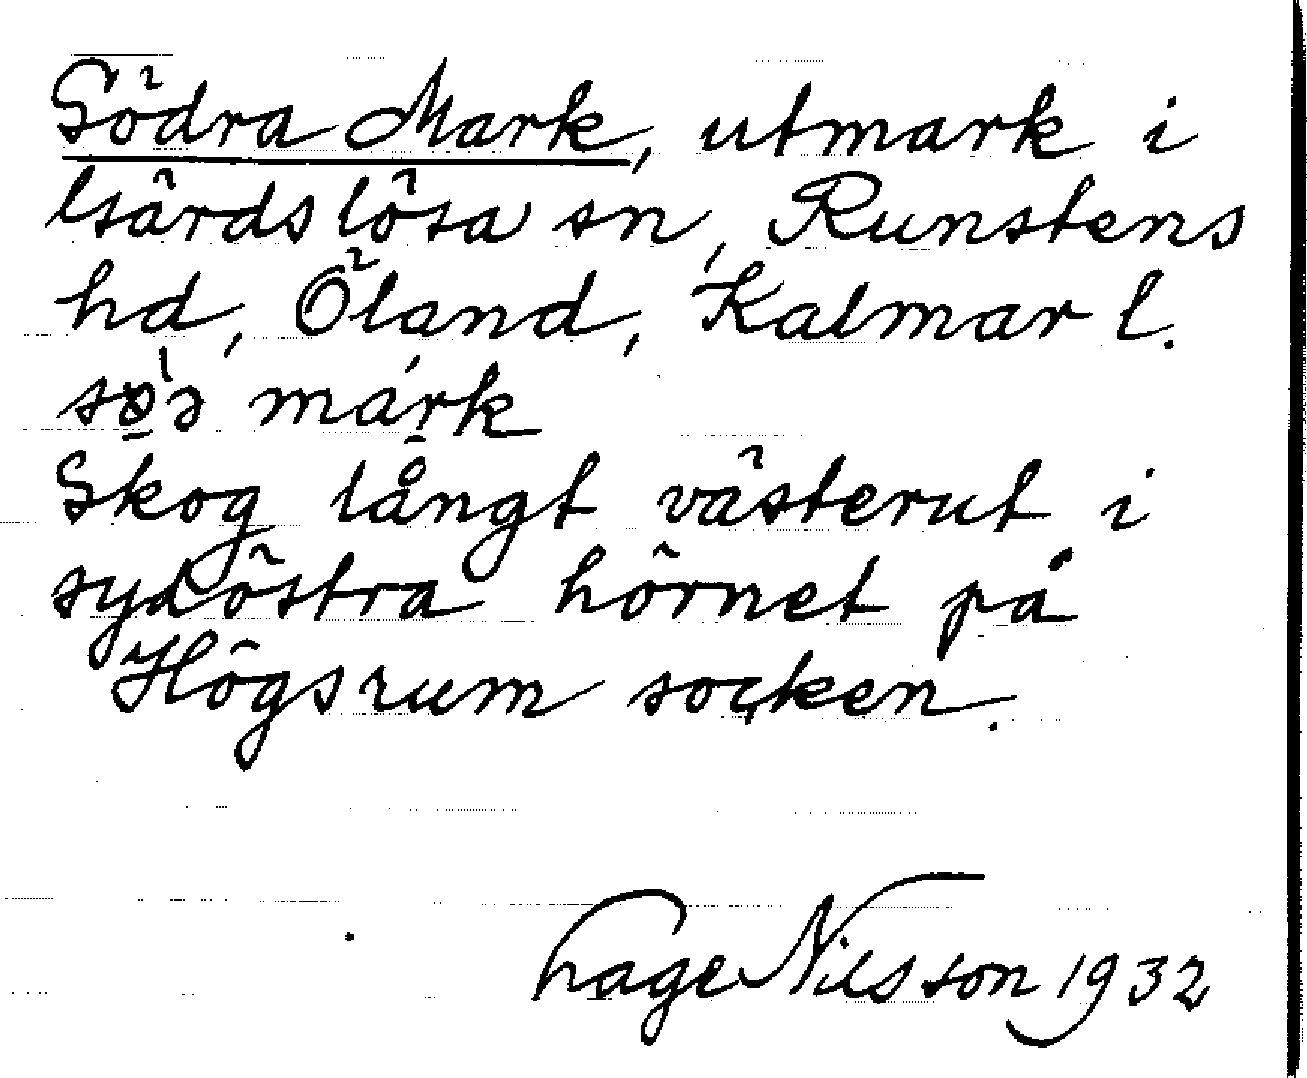 Södra Mark, utmark i
Gärdslösa sn, Runstens
hd, Öland, Kalmar l.
mark
Skog långt västerut i
sydöstra hörnet på
Högsrum socken.
Hage Nilsson 1932